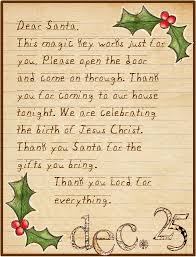 Dear Santa,
This magic key works just for
you. Please open the door
and come on through. Thank
you for coming to our house
tonight. We are celebrating
the birth of Jesus Christ.
Thank you Santa for the
gifts you bring.
Thank you Lord for
everything.
dec. 25